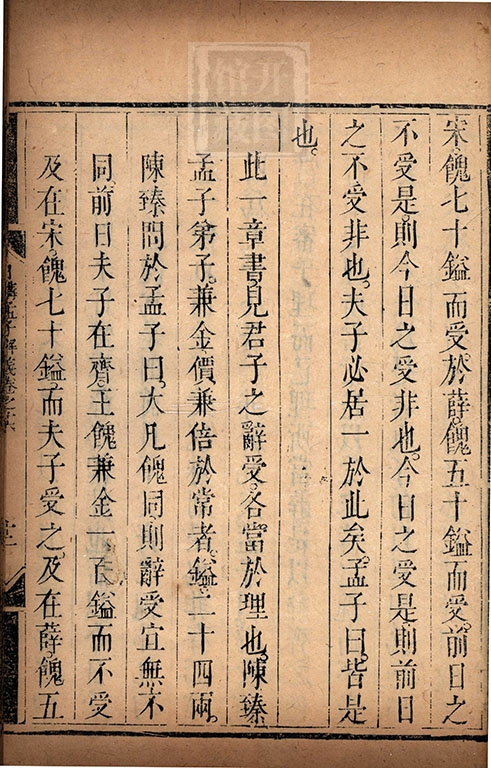 宋餽七十鎰而受於薛餽五十鎰而受前日之
不受是則今日之受非也今日之受是則前日
之不受非也夫子必居一於此矣孟子曰皆是
也
此一章書見君子之辭受各當於理也陳臻
孟子弟子兼金價兼倍於常者鎰二十四兩
陳臻問於孟子曰大凡餽同則辭受宜無不
同前日夫子在齊王餽兼金一百鎰而不受
及在宋餽七十鎰而夫子受之及在薛餽五
日講孟子解義卷之